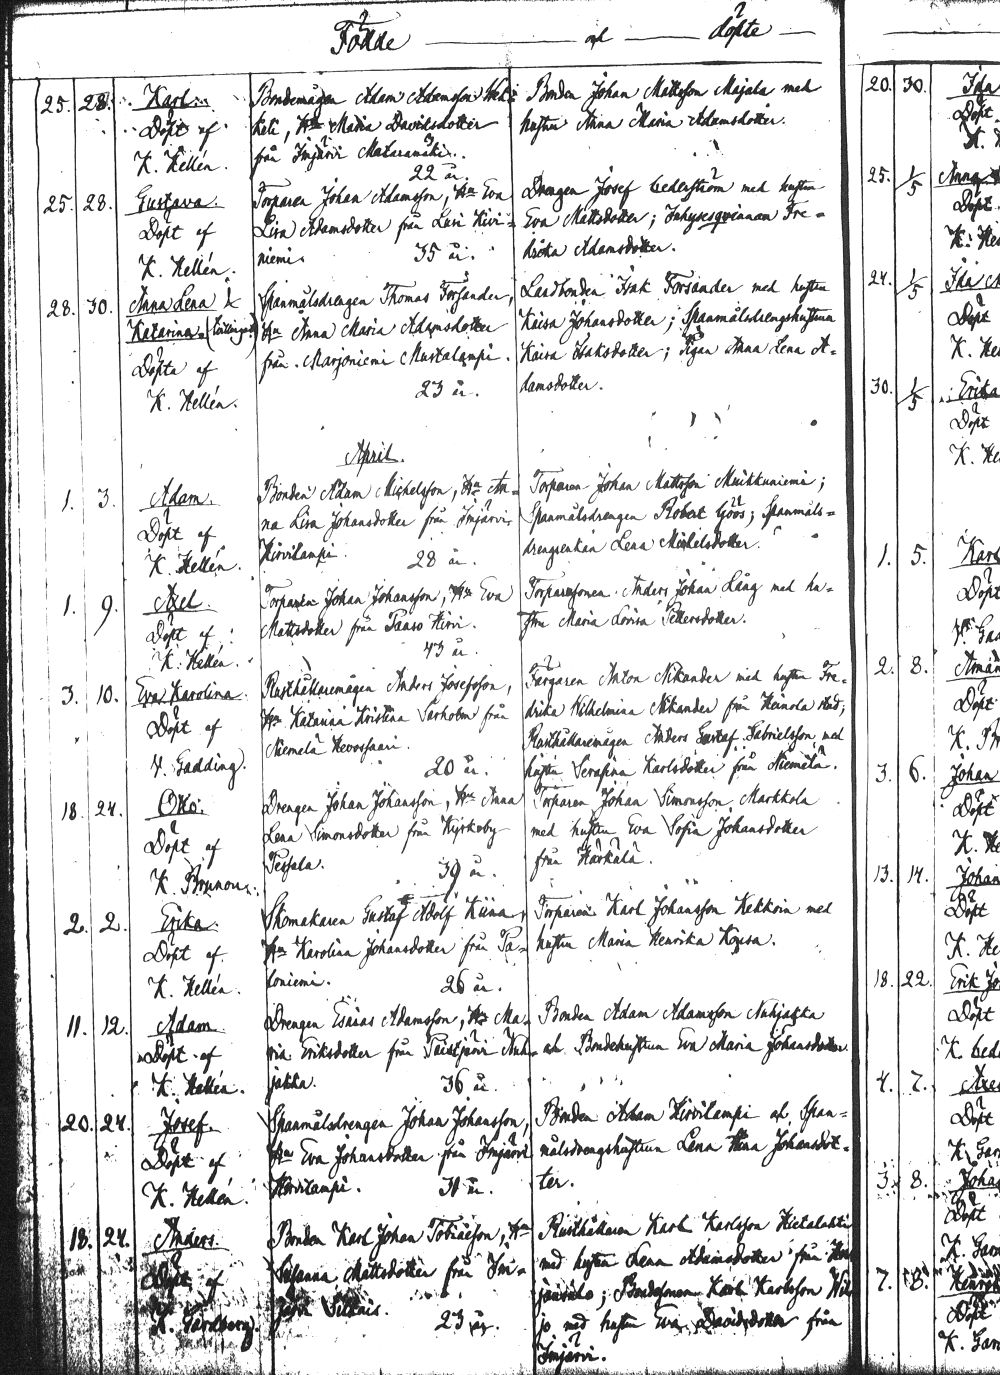 Födde och döpte
25. 28. Karl. Bondemågen Adam Adamsson Bonden Johan Mattsson Majala med
Döpt af keli, Hn Maria Davidsdotter hustru Anna Maria Adamsdotter.
K. Hellén. från Imjärvi Mataramäki.
22 år.
25. 28. Gustava. Torparen Johan Adamsson, Hn Eva Drengen Josef Cederström med hustru
Döpt af Lisa Adamsdotter från Lusi Kivi= Eva Mattsdotter; Inhysesqvinnan Fre=
K. Hellén. niemi. 35 år. drika Adamsdotter.
28. 30. Anna Lena & Spanmålsdrengen Thomas Forsander, Landbonden Isak Forsander med hustru
Katarina (tvillingar) Hn Anna Maria Adamsdotter Kaisa Johansdotter; Spanmålsdrengshustrun
Döpta af från Marjoniemi Mustalampi. Kaisa Isaksdotter; Pigan Anna Lena A=
K. Hellén. 23 år. damsdotter.
April.
1. 3. Adam. Bonden Adam Michelsson, Hn An= Torparen Johan Mattsson Muikkuniemi;
Döpt af na Lisa Johansdotter från Imjärvi Spanmålsdrengen Robert Göös; Spanmåls=
K. Hellén. Hirvilampi. 28 år. drengsenkan Lena Michelsdotter.
1. 9. Axel. Torparen Johan Johansson, Hn Eva Torparesonen Anders Johan Lång med hu=
Döpt af Mattsdotter från Paaso Hirvi. stru Maria Lovisa Pettersdotter.
K. Hellén. 43 år.
3. 10. Eva Karolina. Rusthållaremågen Anders Josefsson, Färgaren Anton Nikander med hustru Fre=
Döpt af Hn Katarina Kristina Sarholm från drika Wilhelmina Nikander från Heinola stad;
V. Gadding. Niemelä Hevossaari. Rusthållaremågen Anders Gustaf Gabrielsson med
20 år. hustru Serafina Karlsdotter från Niemelä.
18. 24. Otto. Drengen Johan Johansson, Hn Anna Torparen Johan Simonsson Markkola
Döpt af Lena Simonsdotter från Kyrkoby med hustru Eva Sofia Johansdotter
K. Brunou. 39 år. från Härkälä.
2. 2. Erika. Skomakaren Gustaf Adolf Kiina, Torparen Karl Johansson Kekkoin med
Döpt af Hn Karolina Johansdotter från Ta= hustru Maria Henrika
K. Hellén. 26 år.
11. 12. Adam. Drengen Esaias Adamsson, Hn Ma= Bonden Adam Adamsson Nuhjakka
Döpt af ria Eriksdotter från Paistjärvi Nuh= och Bondehustrun Eva Maria Johansdotter.
K. Hellén. jakka. 36 år.
20. 24. Josef. Spanmålsdrengen Johan Johansson, Bonden Adam Hirvilampi och Span=
Döpt af Hn Eva Johansdotter från Imjärvi målsdrengshustrun Lena Johansdot=
K. Hellén. Hirvilampi. 31 år. ter.
18. 24. Anders. Bonden Karl Johan Tobiasson, Hn Rusthållaren Karl Karlsson Hietalahti
Döpt af Susanna Mattsdotter från Im= med hustru Lena Adamsdotter från
K. Gardberg. järvi 23 år. Bondesonen Karl Karlsson
med hustru Eva Davidsdotter från
Imjärvi.
20. 30. Ida
Döpt
25. 1/5 Anna
Döpt
K. Hel
27. 1/5 Ida
Döpt
K. Hel
30. 1/5 Erika
Döpt
K. Hel
1. 5. Karl
Döpt
2. 8.
Döpt
3. 6. Johan
Döpt
K. He
13. 14. Johan
Döpt
K. He
18. 22. Erik Jo
Döpt
K. Cede
4. 7. Axel
Döpt
K. Gar
3. 8. Johan
Döpt
K. Gar
7. 8.
Döpt
K. Gar